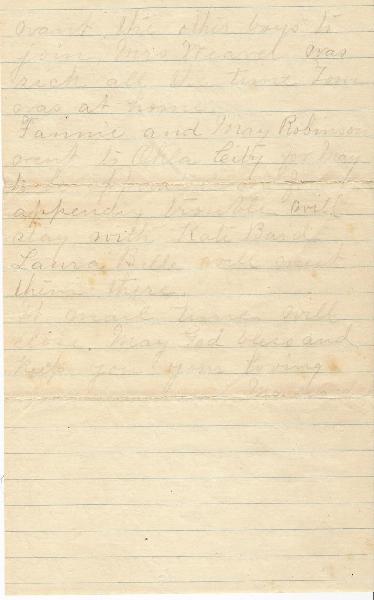 want the other boys to
join. Mrs Weaver was
sick all the time Tom
was at home.
Fannie and May Robinson
went to Okla City for May
to be
appendix trouble will
stay with Kate Bard
Laura Belle will meet
them there.
mail time will
close. May God bless and
keep you your loving